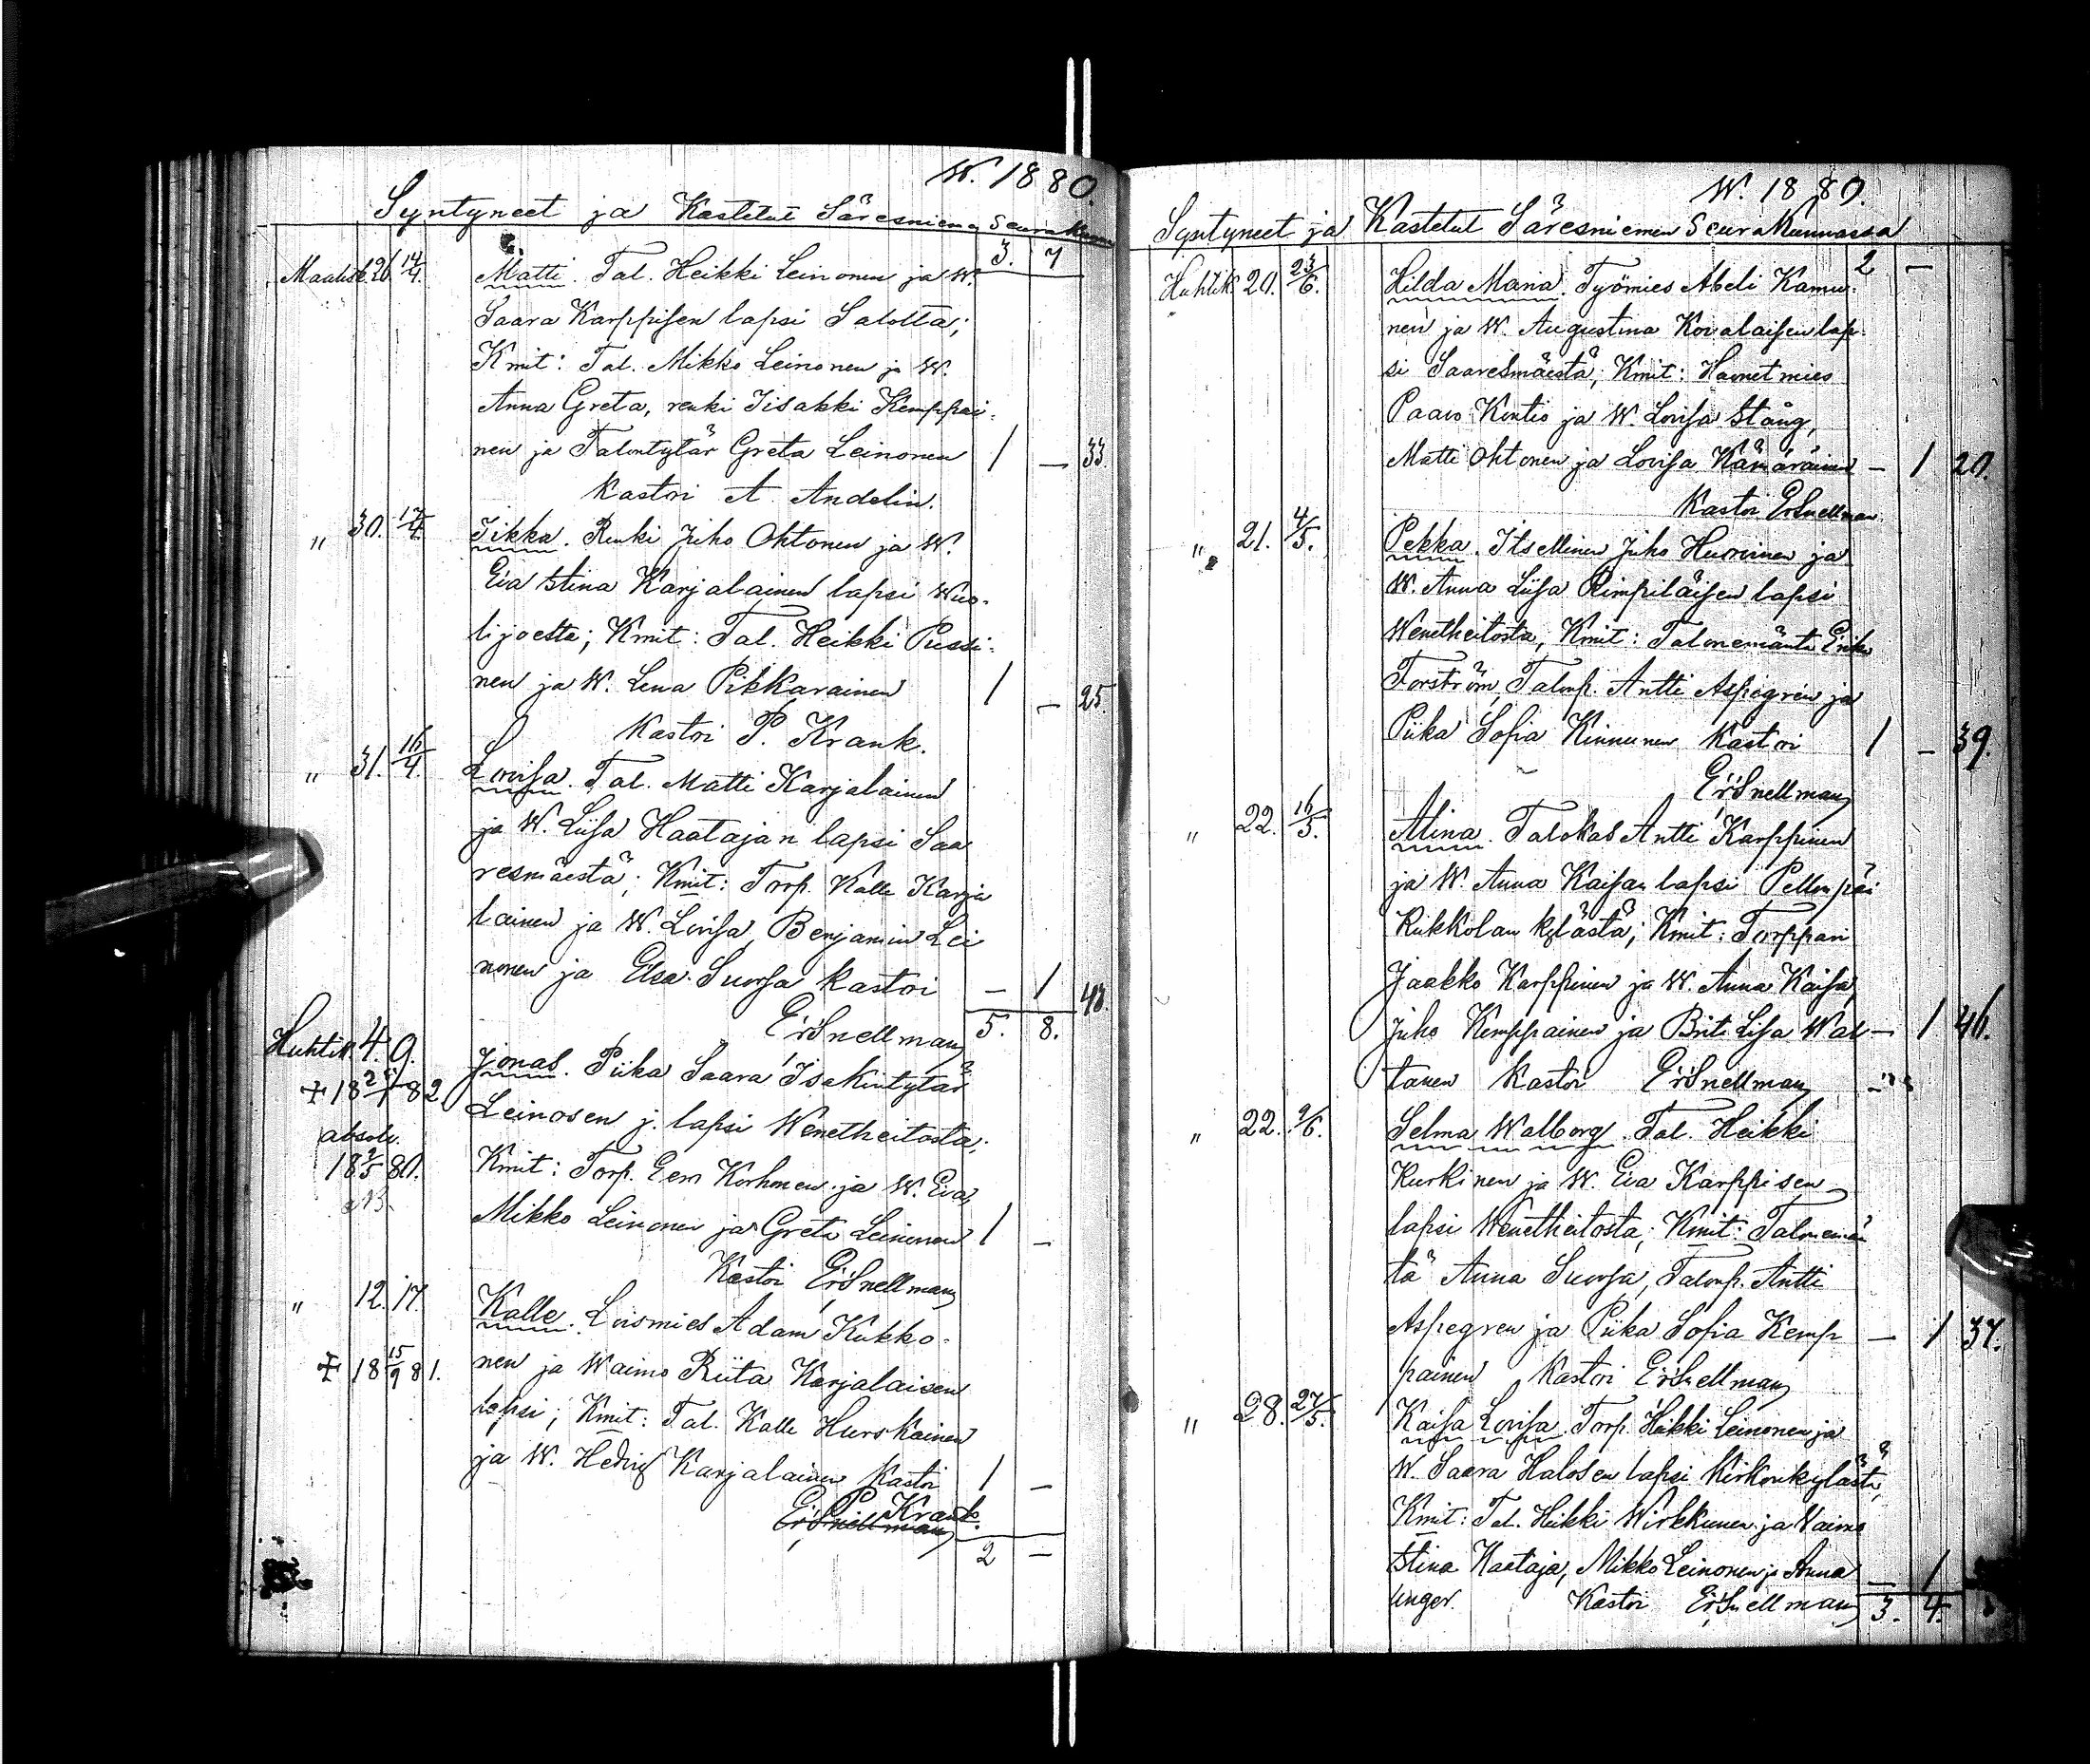 W. 1880.
Syntyneet ja Kastetut Säresniemen Seurakunn
3. 7
Maalisk. 26 14/4. Matti. Tal. Heikki Leinonen ja W.
Saara Karppisen lapsi Salolta;
Kmit: Tal. Mikko Leinonen ja W.
Anna Greta, renki Iisakki Kemppai-
nen ja Talontytär Greta Leinonen 1 — 33.
Kastoi A. Andelin.
„ 30. 17/4. Iikka. Renki Juho Ohtonen ja W.
Eva Stina Karjalainen lapsi Wuo-
lijoelta; Kmit: Tal. Heikki Pussi-
nen ja W. Lena Pikkarainen 1 — 25.
Kastoi P. Krank.
„ 31. 16/4. Lovisa. Tal. Matti Karjalainen
ja W. Liisa Haatajan lapsi Saa
resmäestä; Kmit: Torp. Kalle Karja
lainen ja W. Lovisa, Benjamin Lei
nonen ja Elsa Suorsa kastoi — 1 48.
Er. Snellman 5. 8.
Huhtik. 4. 9. Jonas. Piika Saara Isakintytär
+ 18 82 Leinosen j. lapsi Wenetheitosta;
absolv.
18 2/5 80. Kmit: Torp. Eero Korhonen ja W. Eva,
Mikko Leinonen ja Greta Leinonen 1 —
Kastoi Er. Snellman
„ 12. 17. Kalle. Loismies Adam Kukko-
+ 18 15/9 81. nen ja Waimo Riita Karjalaisen
lapsi; Kmit: Tal. Kalle Hurskainen
ja W. Hedvig Karjalainen Kastoi 1 —
P. Krank.
Er. Snellman
2 —
W. 1880.
Syntyneet ja Kastetut Säresniemen Seurakunnassa
2 —
Huhtik. 20. 23/6. Hilda Maria. Työmies Abeli Kamu-
nen ja W. Augustina Kovalaisen lap-
si Saaresmäestä; Kmit: Huonetmies
Paavo Kontio ja W. Lovisa Stång,
Matti Ohtonen ja Lovisa Kämäräinen — 1 20.
Kastoi Er. Snellman
„ 21. 4/5. Pekka. Itsellinen Juho Hurrinen ja
W. Anna Liisa Rimpiläisen lapsi
Wenetheitosta; Kmit: Talonemäntä Erika
Forström, Talonp. Antti Aspegren ja
Piika Sofia Kinnunen Kastoi 1 — 39.
Er. Snellman
„ 22. 16/5. Alina. Talokas Antti Karppinen
ja W. Anna Kaisan lapsi Pellonpää
Kukkolan kylästä; Kmit: Torppari
Jaakko Karppinen ja W. Anna Kaisa,
Juho Kemppainen ja Brita Lisa Wal — 1 46.
tanen Kastoi Er. Snellman
„ 22. 9/6. Selma Walborg. Tal. Heikki
Kurkinen ja W. Eva Karppisen
lapsi Wenetheitosta; Kmit: Talonemän
tä Anna Suorsa, Talonp. Antti
Aspegren ja Piika Sofia Kemp — 1 37.
painen Kastoi Er. Snellman
„ 28. 27/5. Kaisa Lovisa. Torp. Heikki Leinonen ja
W. Saara Halosen lapsi Kirkonkylästä,
Kmit: Tal. Heikki Wirkkunen ja Vaimo
Stina Haataja, Mikko Leinonen ja Anna — 1
Unger. Kastoi Er. Snellman 3. 4.